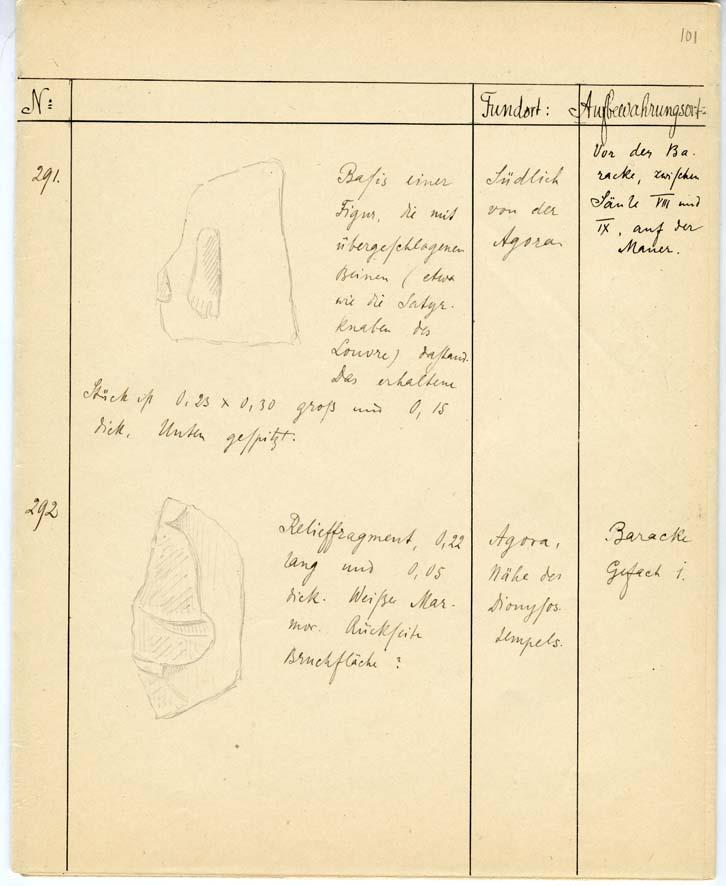 101
N:
Fundort:
Aufbewahrungsort:
291.
Basis einer
Figur, die mit
übergeschlagenen
Beinen (etwa
wie die Satyr-
knaben des
Louvre) dastand.
Das erhaltene
Stück ist 0,23 x 0,30 groß und 0,15
dick. Unten gespitzt.
Südlich
von der
Agora
Vor der Ba-
racke, zwischen
Säule VIII und
IX, auf der
Mauer.
292
Relieffragment, 0,22
lang und 0,05
dick. Weißer Mar-
mor. Rückseite
Bruchfläche?
Agora,
Nähe des
Dionysos-
tempels.
Baracke
Gefach i.